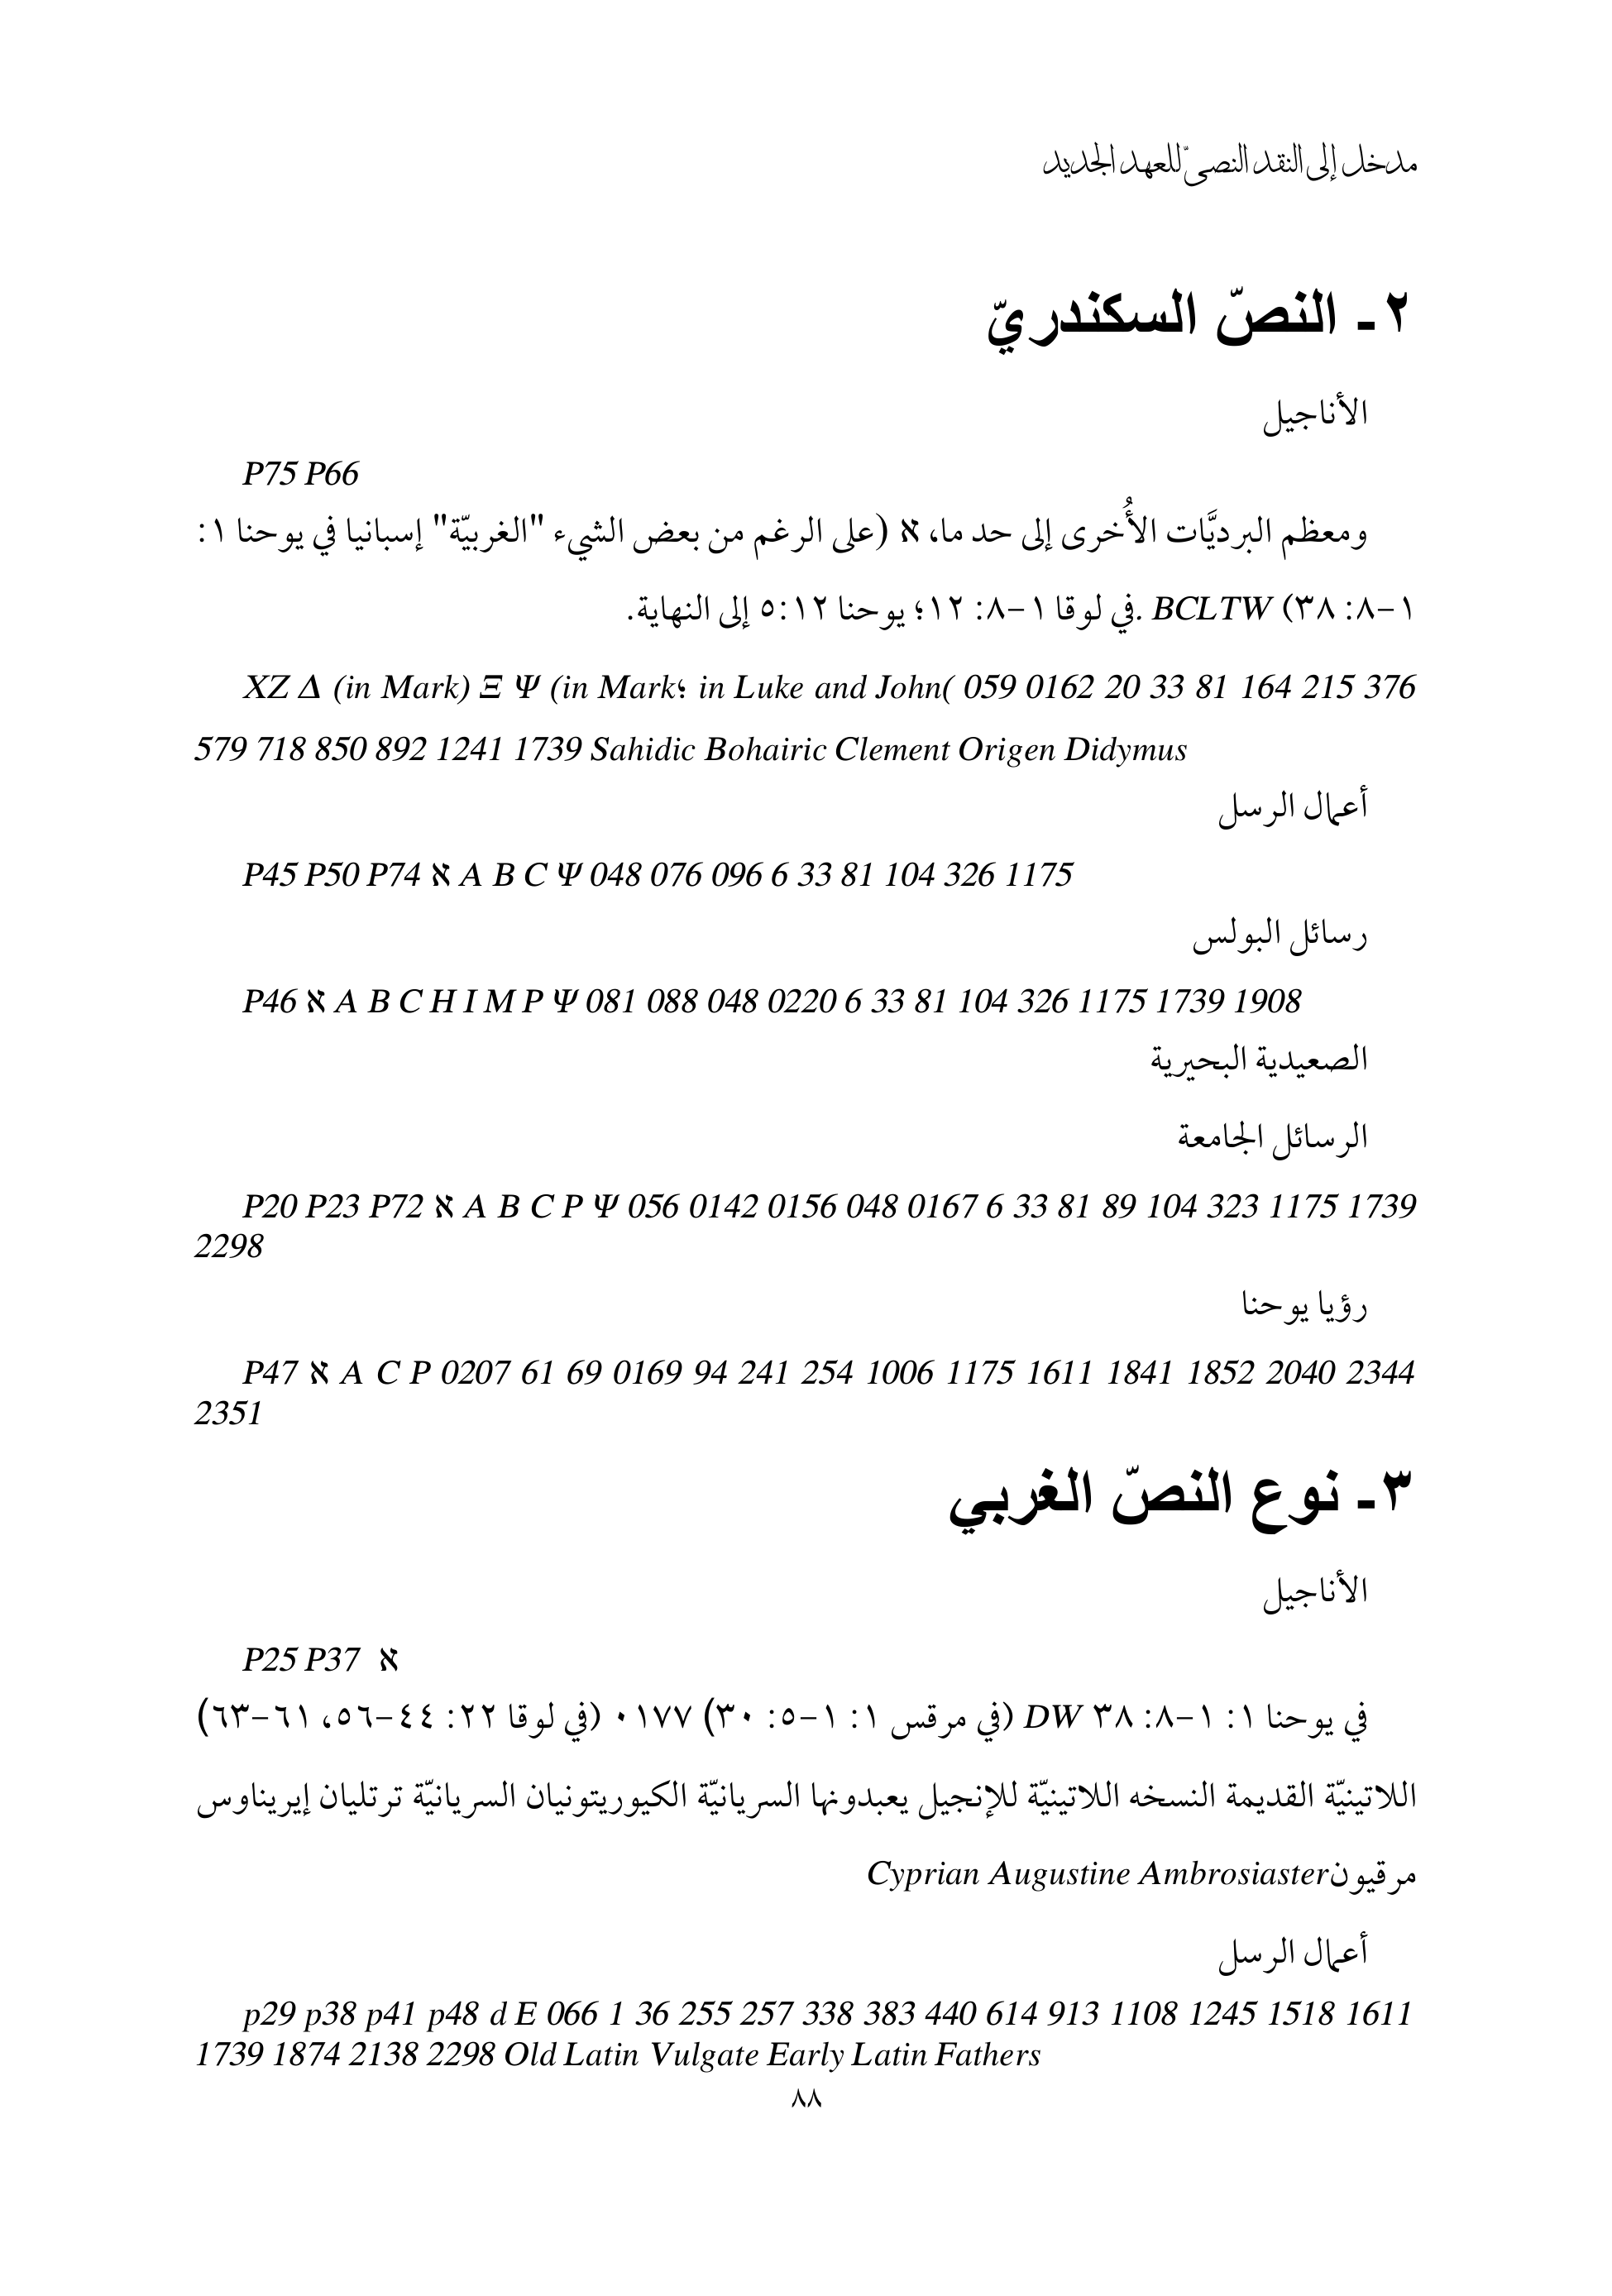 مدخل إلى النقد النصىّ للعهد الجديد
٢- النصّ السكندريّ
الأناجيل
P75 P66
ومعظم البرديَّات الأُخرى إلى حد ما، ℵ (على الرغم من بعض الشيء "الغربيّة" إسبانيا في يوحنا ١:
١-٨: ٣٨) BCLTW .في لوقا ١-٨: ١٢؛ يوحنا ٥:١٢ إلى النهاية.
XZ Δ (in Mark) Ξ Ψ (in Mark؛ in Luke and John( 059 0162 20 33 81 164 215 376
579 718 850 892 1241 1739 Sahidic Bohairic Clement Origen Didymus
أعمال الرسل
P45 P50 P74 ℵ A B C Ψ 048 076 096 6 33 81 104 326 1175
رسائل البولس
P46 ℵ A B C H I M P Ψ 081 088 048 0220 6 33 81 104 326 1175 1739 1908
الصعيدية البحيرية
الرسائل الجامعة
P20 P23 P72 ℵ A B C P Ψ 056 0142 0156 048 0167 6 33 81 89 104 323 1175 1739
2298
رؤيا يوحنا
P47 ℵ A C P 0207 61 69 0169 94 241 254 1006 1175 1611 1841 1852 2040 2344
2351
٣- نوع النصّ الغربي
الأناجيل
P25 P37 ℵ
في يوحنا ١: ١-٨: ٣٨ DW (في مرقس ١: ١-٥: ٣٠) ٠١٧٧ (في لوقا ٢٢: ٤٤-٥٦، ٦١-٦٣)
اللاتينيّة القديمة النسخه اللاتينيّة للإنجيل يعبدونها السريانيّة الكيوريتونيان السريانيّة ترتليان إيريناوس
مرقيونCyprian Augustine Ambrosiaster
أعمال الرسل
p29 p38 p41 p48 d E 066 1 36 255 257 338 383 440 614 913 1108 1245 1518 1611
1739 1874 2138 2298 Old Latin Vulgate Early Latin Fathers
٨٨